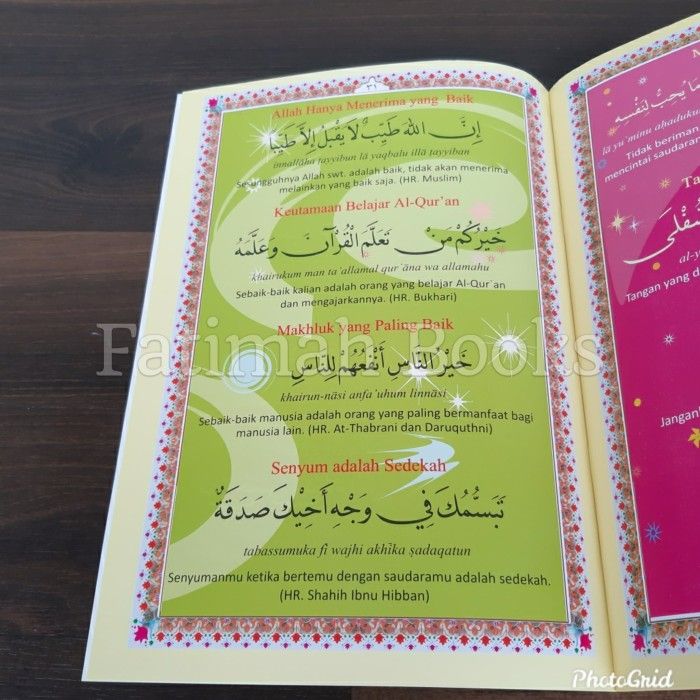 ٣١
Allah Hanya Menerima yang Baik
إِنَّ اللهَ طَيِّبٌ لَا يَقْبَلُ إِلَّا طَيِّبًا
innallāha ṭayyibun lā yaqbalu illā ṭayyiban
Sesungguhnya Allah swt. adalah baik, tidak akan menerima
melainkan yang baik saja. (HR. Muslim)
Keutamaan Belajar Al-Qur'an
خَيْرُكُمْ مَنْ تَعَلَّمَ الْقُرْآنَ وَعَلَّمَهُ
khairukum man ta'allamal qur'āna wa allamahu
Sebaik-baik kalian adalah orang yang belajar Al-Qur'an
dan mengajarkannya. (HR. Bukhari)
Makhluk yang Paling Baik
خَيْرُ النَّاسِ أَنْفَعُهُمْ لِلنَّاسِ
khairun-nāsi anfa'uhum linnāsi
Sebaik-baik manusia adalah orang yang paling bermanfaat bagi
manusia lain. (HR. At-Thabrani dan Daruquthni)
Senyum adalah Sedekah
تَبَسُّمُكَ فِي وَجْهِ أَخِيْكَ صَدَقَةٌ
tabassumuka fī wajhi akhīka ṣadaqatun
Senyumanmu ketika bertemu dengan saudaramu adalah sedekah.
(HR. Shahih Ibnu Hibban)
مَا يُحِبُّ لِنَفْسِهِ
lā yu'minu aḥaduku
Tidak beriman
mencintai saudaran
Ta
السُّفْلَى
al-y
Tangan yang d
Jangan
Fatimah Books
PhotoGrid